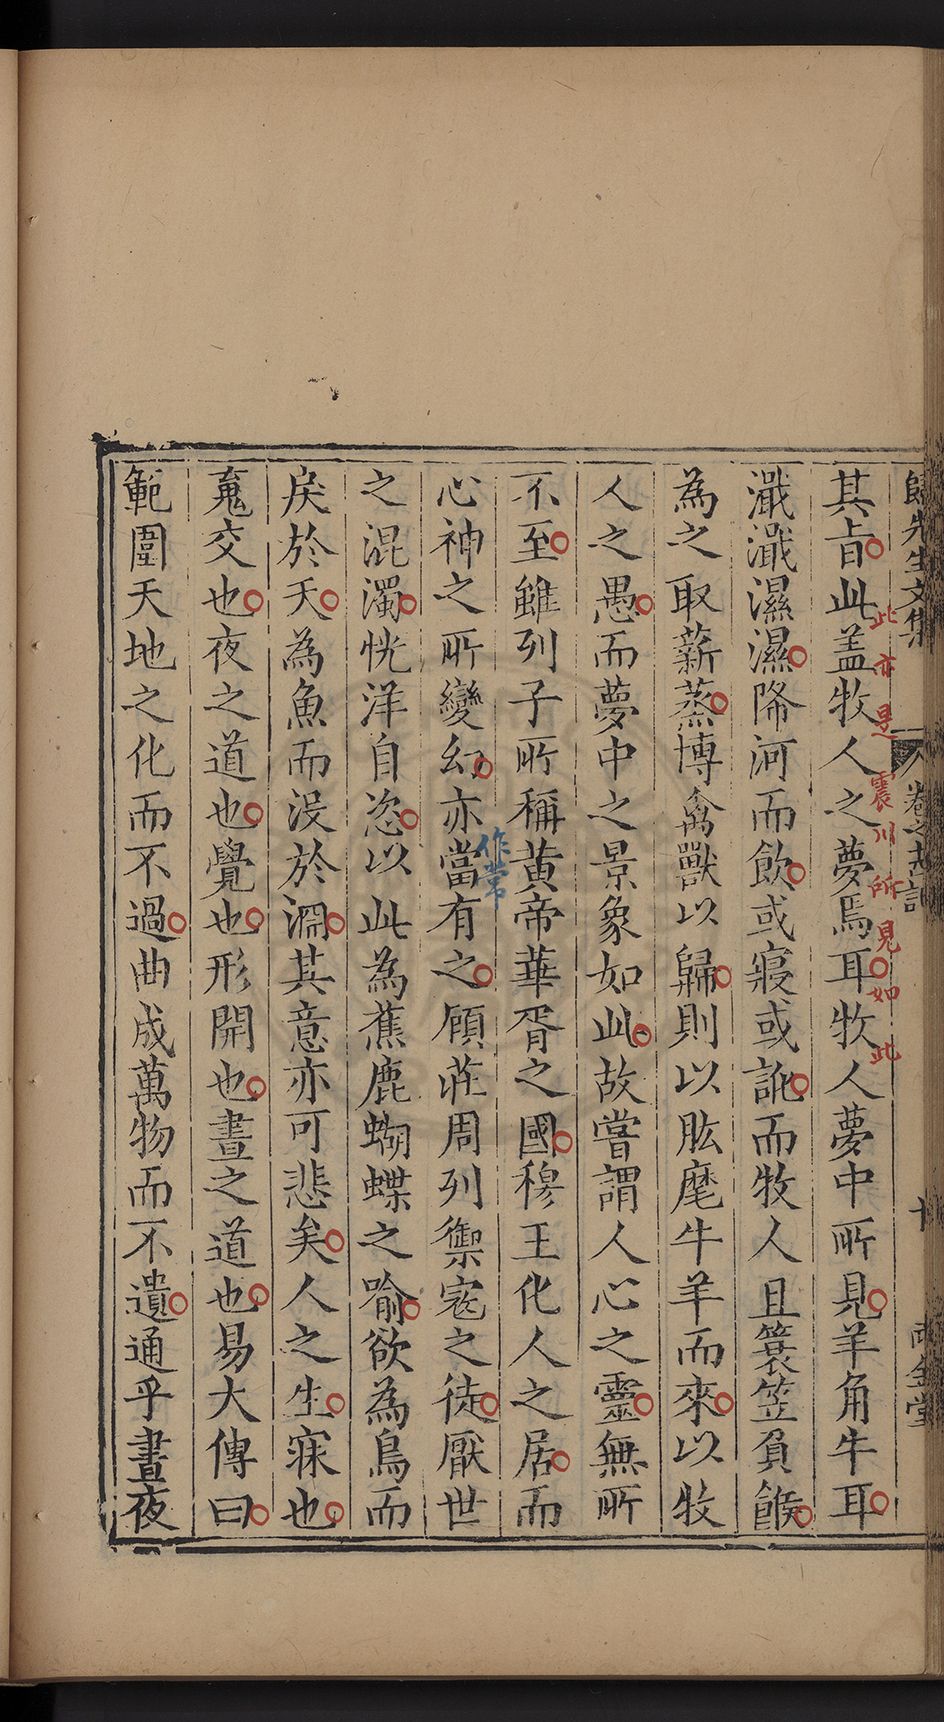 歸先生文集 卷之十 記 十 雨金堂
其㫖此蓋牧人之夢焉耳牧人夢中所見羊角牛耳
此亦是震川所見如此
濈濈濕濕降河而飲或寢或訛而牧人且簑笠負餱
為之取薪蒸博禽獸以歸則以肱麾牛羊而來以牧
人之愚而夢中之景象如此故嘗謂人心之靈無所
不至雖列子所稱黃帝華胥之國穆王化人之居而
心神之所變幻亦當有之顧莊周列禦寇之徒厭世
作常
之混濁恍洋自恣以此為蕉鹿蝴蝶之喻欲為鳥而
戾於天為魚而没於淵其意亦可悲矣人之生寐也
䰟交也夜之道也覺也形開也晝之道也易大傳曰
範圍天地之化而不過曲成萬物而不遺通乎晝夜